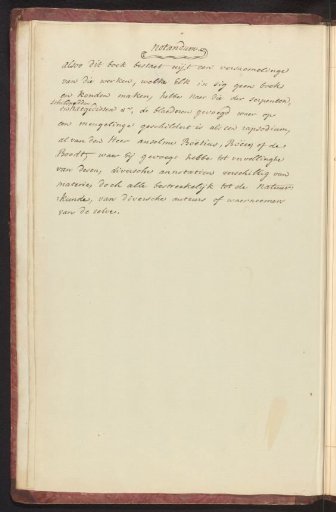 Notandum
also dit boek bestaet uijt een versaemelinge
van die werken, welke Elk in sig geen boek
en konden maken, hebbe naer die der serpenten,
schilpadden
&c, de bladeren gevoegd waer op
een mengelinge geschildert is als een rapsodium,
al van den Heer anselme Boetius, de
Boodt, waer bij gevoegt hebbe tot vervollinghe
van desen, diversche annotatien verschillig van
materie, doch alle betreckelijk tot de Natuur
kunde, van diversche auteurs of waerneemers
van de selve.